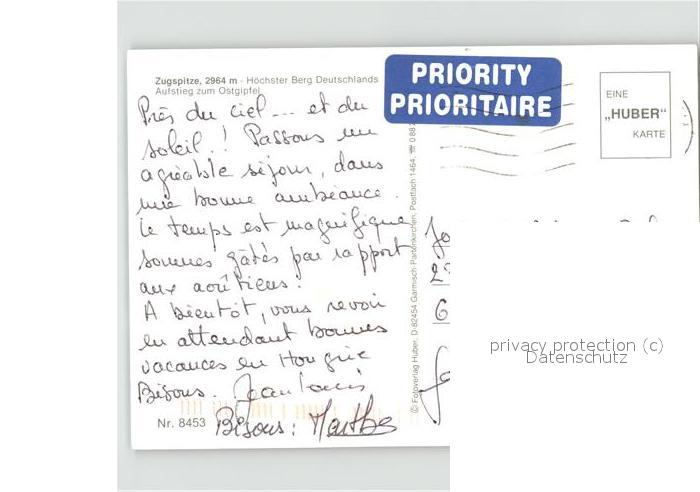 Zugspitze, 2964 m - Höchster Berg Deutschlands
Aufstieg zum Ostgipfel
Près du ciel... et du
soleil.! Passons un
agréable séjour, dans
une bonne ambiance.
le temps est magnifique
sommes gâtés par rapport
aux aoûtiens!
A bientôt, vous revoir
en attendant bonnes
vacances en Hongrie
Bisous. Jean Louis
Bisous: Marthe
Nr. 8453
PRIORITY
PRIORITAIRE
© Fotoverlag Huber, D-82454 Garmisch-Partenkirchen, Postfach 1464, ☎ 0 88 2
EINE
„HUBER"
KARTE
privacy protection (c)
Datenschutz